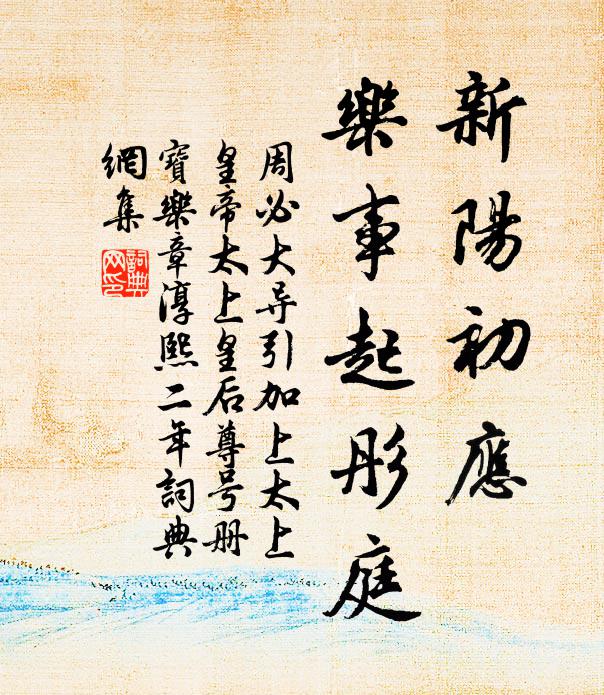 新陽初應
樂事起彤庭
周必大导引加上太上
皇帝太上皇后尊号册
寶樂章淳熙二年詞典
網集
詞典
网印